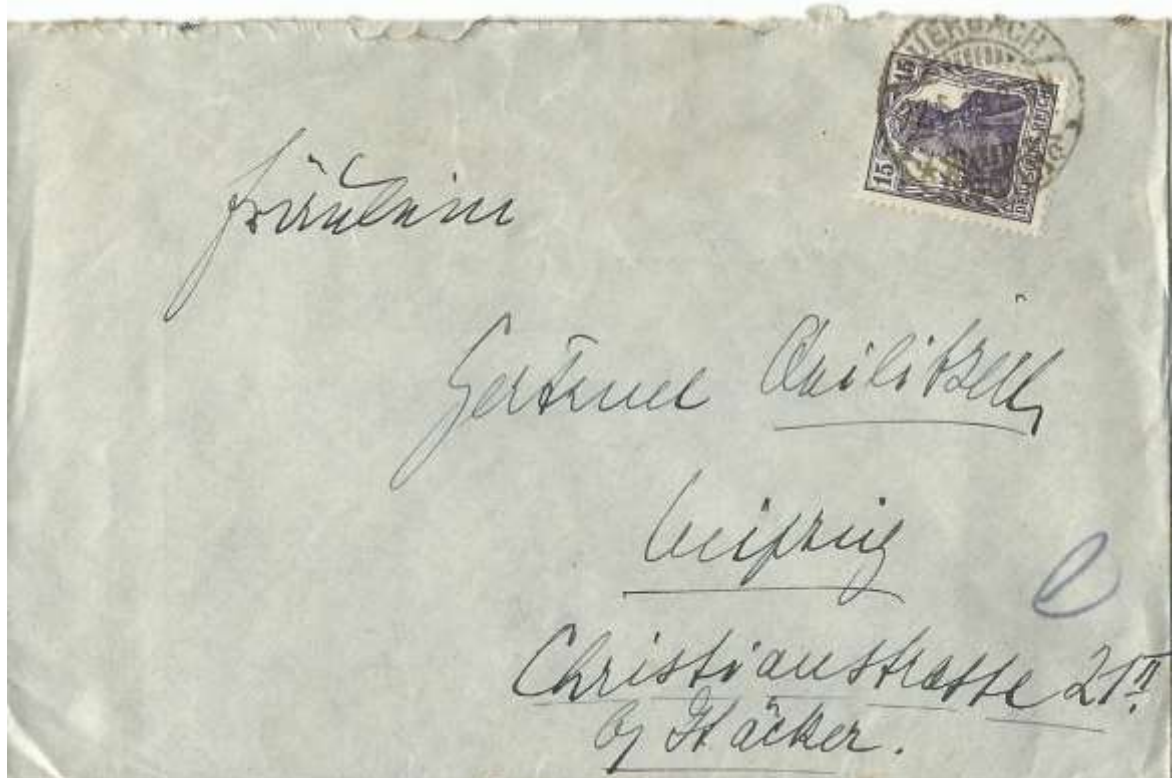 UERBACH
15 15
DEUTSCHES REICH
Fräulein
Gertrud Quilitzsch
Leipzig
Christianstrasse 21 II.
b/ Stäcker.